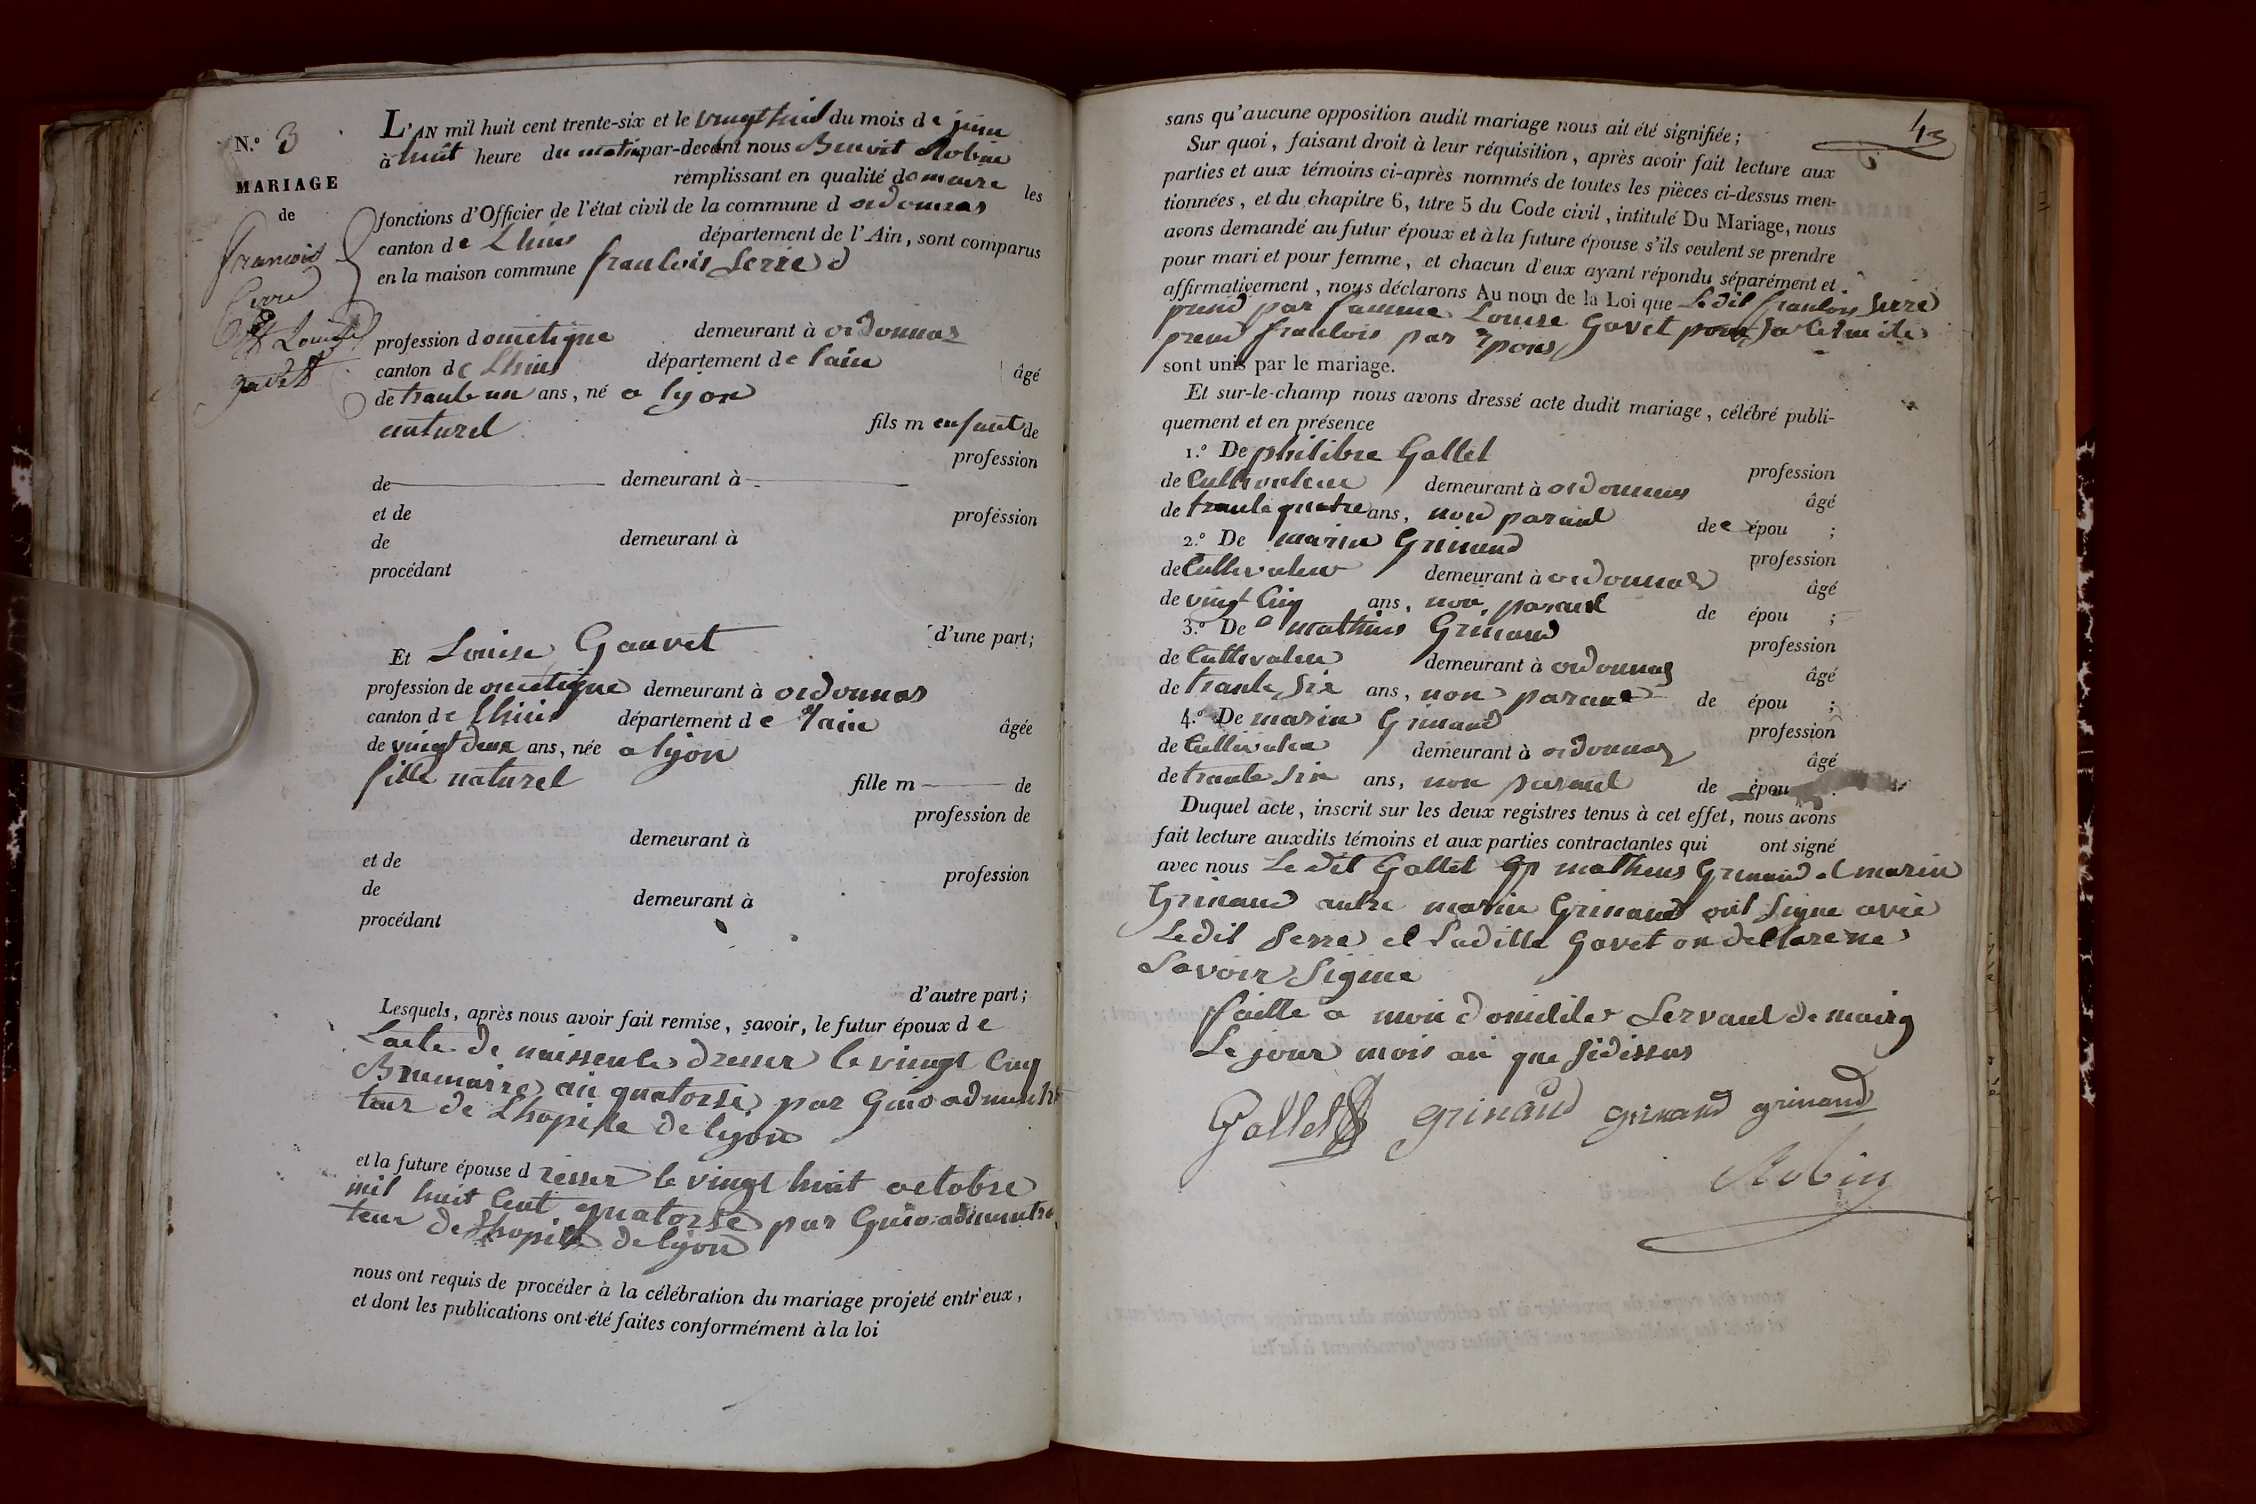 N.º 3
MARIAGE
de
francois
Serre
et Louise
gavet
L'AN mil huit cent trente-six et le vingt huit du mois de juin
à huit heure du matin par-devant nous Benoit Robin
remplissant en qualité de maire les
fonctions d'Officier de l'état civil de la commune d ordonnas
canton de Lhuis département de l'Ain, sont comparus
en la maison commune francois Serre d
profession dometique demeurant à ordonnas
canton de Lhuis département de lain âgé
de trante un ans, né a lyon
naturel fils m enfant de
profession
de demeurant à
et de profession
de demeurant à
procédant
d'une part;
Et Louise Gauvet
profession de ometique demeurant à ordonnas
canton de Lhuis département de lain âgée
de vingt deux ans, née a lyon
fille naturel fille m de
profession de
demeurant à
et de profession
de demeurant à
procédant
d'autre part;
Lesquels, après nous avoir fait remise, savoir, le futur époux de
Lacte de naissence dresser le vingt cinq
Brumaire an quatorse par Guio adminitra
teur de Lhopitle de lyon
et la future épouse d resser le vingt huit octobre
mil huit cent quatorse par Guio adminitra
teur de Lhopitle de lyon
nous ont requis de procéder à la célébration du mariage projeté entr'eux,
et dont les publications ont été faites conformément à la loi
43
sans qu'aucune opposition audit mariage nous ait été signifiée;
Sur quoi, faisant droit à leur réquisition, après avoir fait lecture aux
parties et aux témoins ci-après nommés de toutes les pièces ci-dessus men-
tionnées, et du chapitre 6, titre 5 du Code civil, intitulé Du Mariage, nous
avons demandé au futur époux et à la future épouse s'ils veulent se prendre
pour mari et pour femme, et chacun d'eux ayant répondu séparément et
affirmativement, nous déclarons Au nom de la Loi que Ledit francois Serre
prend par famme Louise Gavet
prend francois par epous
sont unis par le mariage.
Et sur-le-champ nous avons dressé acte dudit mariage, célébré publi-
quement et en présence
1.º De philibre Gallet profession
de Cultivateur demeurant à ordonnas âgé
de trante quatre ans, non parant de e épou ;
2.º De marin Grinand profession
de Cultivateur demeurant à ordonnas âgé
de vingt cinq ans, non parant de épou ;
3.º De mathieus Grinand profession
de Cultivateur demeurant à ordonnas âgé
de trante six ans, non parant de épou ;
4.º De marin Grinand profession
de Cultivateur demeurant à ordonnas âgé
de trante six ans, non parant de épou .
Duquel acte, inscrit sur les deux registres tenus à cet effet, nous avons
fait lecture auxdits témoins et aux parties contractantes qui ont signé
avec nous Le dit Gallet mathieus Grinand et marin
Grinand autre marin Grinand ont signe avec
Ledit Serre et Laditte Gavet on declare ne
Savoir Signie
faitte a mon domicile Servant de mairy
Le jour mois an que sidissus
Gallet grinand grinand grinand
Robin